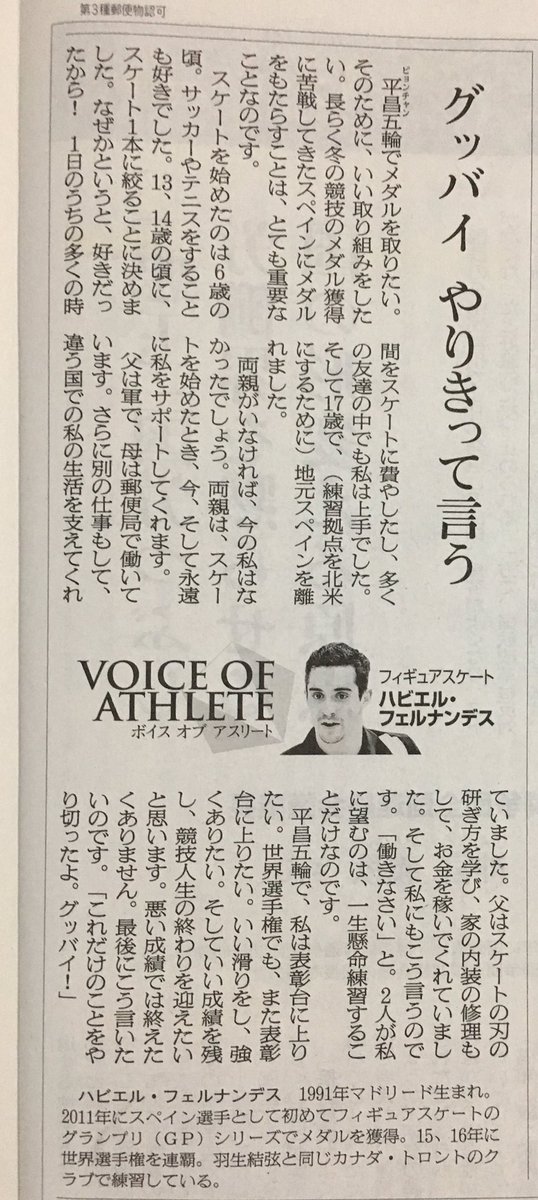 第3種郵便物認可
グッバイ やりきって言う
平昌五輪でメダルを取りたい。
ピョンチャン
そのために、いい取り組みをした
い。長らく冬の競技のメダル獲得
に苦戦してきたスペインにメダル
をもたらすことは、とても重要な
ことなのです。
スケートを始めたのは6歳の
頃。サッカーやテニスをすること
も好きでした。13、14歳の頃に、
スケート1本に絞ることに決めま
した。なぜかというと、好きだっ
たから! 1日のうちの多くの時
間をスケートに費やしたし、多く
の友達の中でも私は上手でした。
そして17歳で、(練習拠点を北米
にするために)地元スペインを離
れました。
両親がいなければ、今の私はな
かったでしょう。両親は、スケー
トを始めたとき、今、そして永遠
に私をサポートしてくれます。
父は軍で、母は郵便局で働いて
います。さらに別の仕事もして、
違う国での私の生活を支えてくれ
VOICE OF
ATHLETE
ボイス オブ アスリート
フィギュアスケート
ハビエル・
フェルナンデス
ていました。父はスケートの刃の
研ぎ方を学び、家の内装の修理も
して、お金を稼いでくれていまし
た。そして私にもこう言うので
す。「働きなさい」と。2人が私
に望むのは、一生懸命練習するこ
とだけなのです。
平昌五輪で、私は表彰台に上り
たい。世界選手権でも、また表彰
台に上りたい。いい滑りをし、強
くありたい。そしていい成績を残
し、競技人生の終わりを迎えたい
と思います。悪い成績では終えた
くありません。最後にこう言いた
いのです。「これだけのことをや
り切ったよ。グッバイ!」
ハビエル・フェルナンデス 1991年マドリード生まれ。
2011年にスペイン選手として初めてフィギュアスケートの
グランプリ(GP)シリーズでメダルを獲得。15、16年に
世界選手権を連覇。羽生結弦と同じカナダ・トロントのク
ラブで練習している。